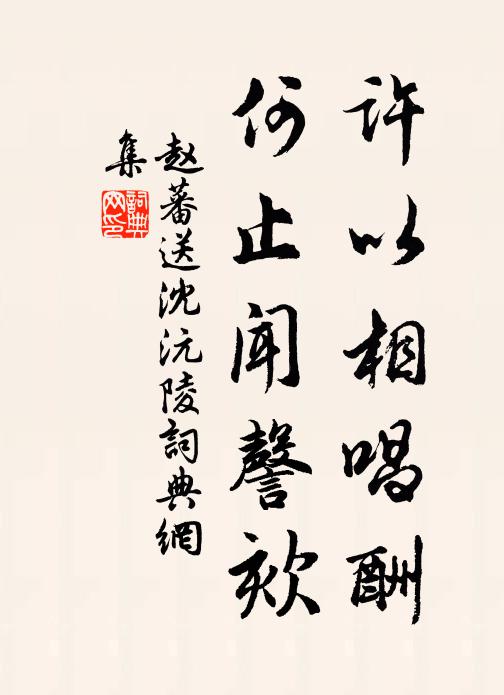 許以相唱酬
何止聞謦欬
赵蕃送沈沅陵詞典網
集
詞典網印